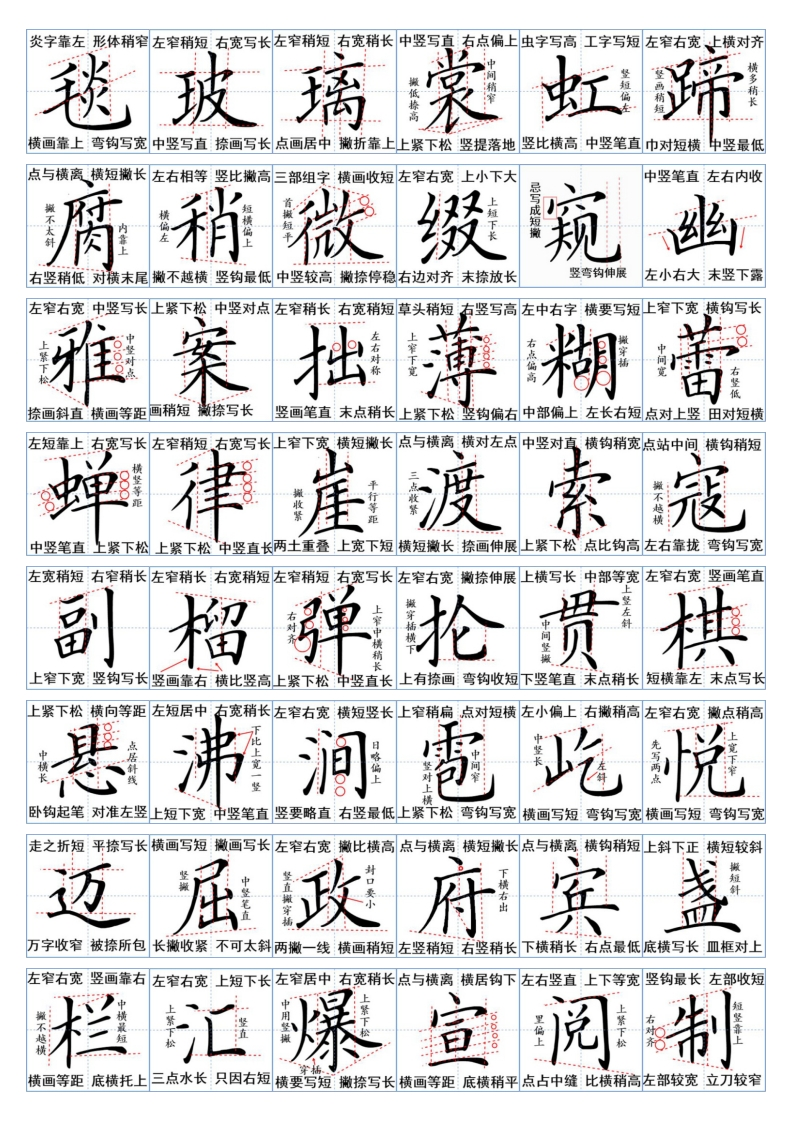 炎字靠左 形体稍窄 左窄稍短 右宽写长 左窄稍短 右宽稍长 中竖写直 右点偏上 虫字写高 工字写短 左窄右宽 上横对齐
毯 玻 璃 裳 虹 蹄
撇低捺高 中间稍窄 竖短偏左 竖画稍短 横多稍长
横画靠上 弯钩写宽 中竖写直 捺画写长 点画居中 撇折靠上 上紧下松 竖提落地 竖比横高 中竖笔直 巾对短横 中竖最低
点与横离 横短撇长 左右相等 竖比撇高 三部组字 横画收短 左窄右宽 上小下大 中竖笔直 左右内收
腐 稍 微 缀 窥 幽
撇不太斜 内靠上 横偏左 短横偏上 首撇短平 上短下长 忌写成短撇
右竖稍低 对横末尾 撇不越横 竖钩最低 中竖较高 撇捺停稳 右边对齐 末捺放长 竖弯钩伸展 左小右大 末竖下露
左窄右宽 中竖写长 上紧下松 中竖对点 左窄稍长 右宽稍短 草头稍短 右竖写高 左中右字 横要写短 上窄下宽 横钩写长
雅 案 拙 薄 糊 蕾
上紧下松 中竖对点 左右对称 上窄下宽 右点偏高 撇穿插 中间宽 右竖低
捺画斜直 横画等距 画稍短 撇捺写长 竖画笔直 末点稍长 上紧下松 竖钩偏右 中部偏上 左长右短 点对上竖 田对短横
左短靠上 右宽写长 左窄稍短 右宽写长 上窄下宽 横短撇长 点与横离 横对左点 中竖对直 横钩稍宽 点站中间 横钩稍短
蝉 律 崖 渡 索 寇
横竖等距 撇收紧 平行等距 三点收紧 撇不越横
中竖笔直 上紧下松 上紧下松 中竖直长 两土重叠 上宽下短 横短撇长 捺画伸展 上紧下松 点比钩高 左右靠拢 弯钩写宽
左宽稍短 右窄稍长 左窄稍长 右宽稍短 左窄稍短 右宽写长 左窄右宽 撇捺伸展 上横写长 中部等宽 左窄右宽 竖画笔直
副 榴 弹 抡 贯 棋
右对齐 上窄中横稍长 撇穿插横下 中间竖撇 上竖左斜
上窄下宽 竖钩写长 竖画靠右 横比竖高 上紧下松 中竖直长 上有捺画 弯钩收短 下竖笔直 末点稍长 短横靠左 末点写长
上紧下松 横向等距 左短居中 右宽稍长 左窄右宽 横短竖长 上窄稍扁 点对短横 左小偏上 右撇稍短 左窄右宽 撇点稍高
悬 沸 涧 雹 屹 悦
中横长 点居斜线 下比上宽一竖 日略偏上 竖对上横 中间窄 中竖长 左斜 先写两点 上宽下窄
卧钩起笔 对准左竖 上短下宽 中竖笔直 竖要略直 右竖最低 上紧下松 弯钩写宽 横画写短 弯钩写宽 横画写短 弯钩写宽
走之折短 平捺写长 横画写短 撇画写长 左窄右宽 撇比横高 点与横离 横短撇长 点与横离 横钩稍短 上斜下正 横短较斜
迈 屈 政 府 宾 盏
竖撇 中竖笔直 竖直撇穿插 封口要小 下横右出 撇短斜
万字收窄 被捺所包 长撇收紧 不可太斜 两撇一线 横画稍短 左竖稍短 右竖稍长 下横稍长 右点最低 底横写长 皿框对上
左窄右宽 竖画靠右 左窄右宽 上短下长 左窄居中 右宽稍长 点与横离 横居钩下 左右竖直 上下等宽 竖钩最长 左部收短
栏 汇 爆 宣 阅 制
撇不越横 中横最短 上紧下松 竖直 中用竖撇 上紧下松 穿插 里偏上 上紧下松 右对齐 短竖靠上
横画等距 底横托上 三点水长 只因右短 横要写短 撇捺写长 横画等距 底横稍平 点占中缝 比横稍高 左部较宽 立刀较窄